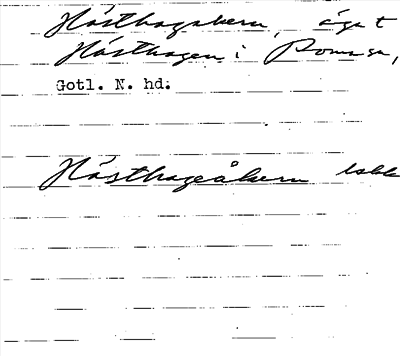 Hästhagåkern, äga t
Hästhagen i Roma sn,
Gotl. N. hd.
Hästhageåkern